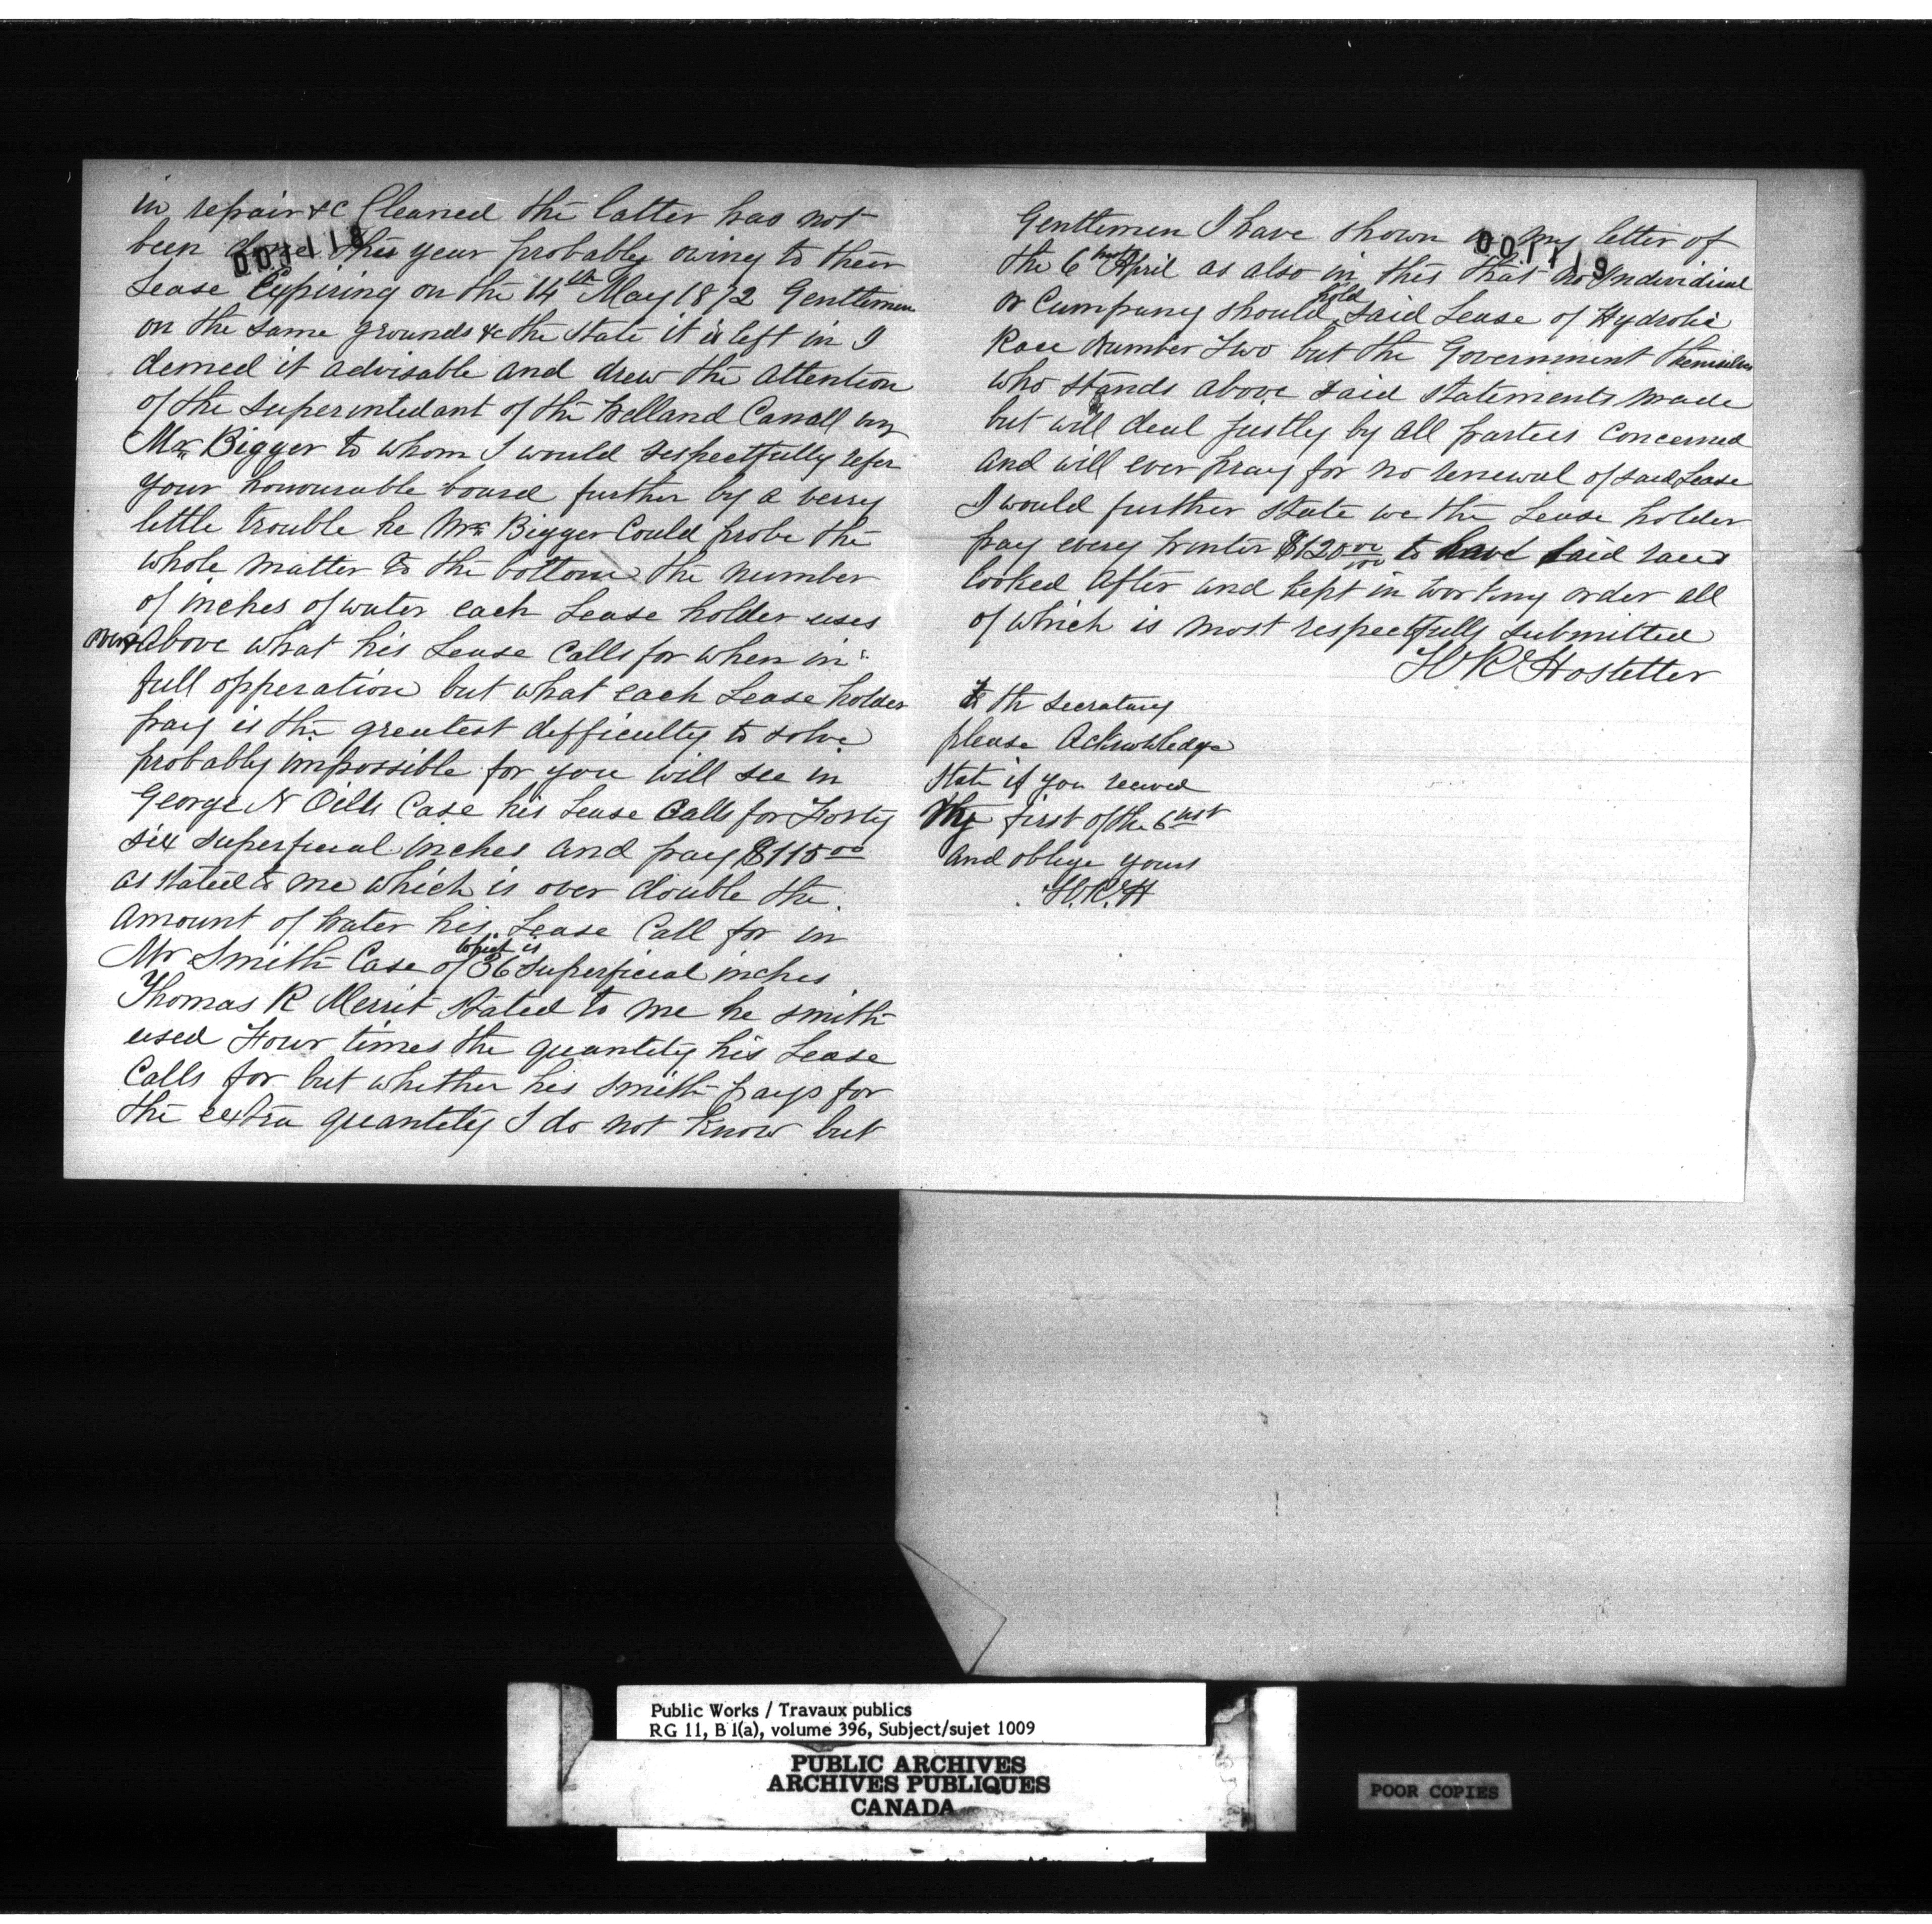 in repair &c Cleaned the latter has not
been done this year probably owing to their
001118
Lease Expiring on the 14th May 1872 Gentlemen
on the same grounds &c the state it is left in I
demed it advisable and drew the attention
of the superintedant of the Welland Canall
Mr. Bigger to whom I would respectfully refer
your honourable board further by a verry
little trouble he Mr. Bigger Could probe the
whole matter to the bottom the number
of inches of water each Lease holder uses
over above what his Lease Calls for when in
full opperation but what each Lease holder
pay is the greatest difficulty to solve
probably impossible for you will see in
George N Oills Case his Lease Calls for Forty
six superficial inches and pay $115 00
as stated to me which is over double the
amount of water his Lease Call for in
Mr Smith Case of which is 36 superficial inches
Thomas R Merrit stated to me he smith
used Four times the quantity his Lease
Calls for but whether his smith pays for
the extra quantity I do not know but
Gentlemen I have shown in my letter of
001119
the 6 April as also in this that no Individual
or Cumpany should hold said Lease of Hydrolic
Race Number Two but the Government themselves
who stands above said statements made
but will deal justly by all parties concerned
and will ever pray for no renewal of said Lease
I would further state we the Lease holder
pay every winter $120 00/100 to have said race
looked after and kept in working order all
of which is most respectfully submitted
H R Hostetter
To th secratary
please Acknowledge
state if you receved
My first of the 6
and oblige yours
H.R.H
Public Works / Travaux publics
RG 11, B 1(a), volume 396, Subject/sujet 1009
PUBLIC ARCHIVES
ARCHIVES PUBLIQUES
CANADA
POOR COPIES